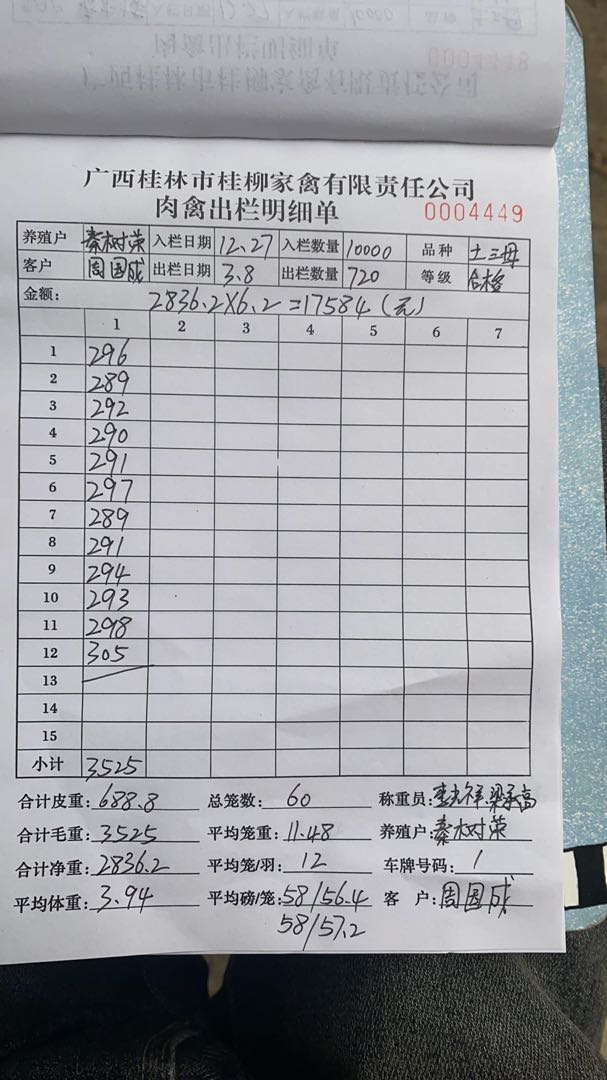 0004448
广西桂林市桂柳家禽有限责任公司
肉禽出栏明细单 0004449
养殖户 秦树荣 入栏日期 12.27 入栏数量 10000 品种 土三母
客户 周国成 出栏日期 3.8 出栏数量 720 等级 合格
金额: 2836.2×6.2=17584(元)
1 2 3 4 5 6 7
1 296
2 289
3 292
4 290
5 291
6 297
7 289
8 291
9 294
10 293
11 298
12 305
13
14
15
小计 3525
合计皮重: 688.8 总笼数: 60 称重员:
合计毛重: 3525 平均笼重: 11.48 养殖户: 秦树荣
合计净重: 2836.2 平均笼/羽: 12 车牌号码: 1
平均体重: 3.94 平均磅/笼: 58/56.4 客 户: 周国成
58/57.2